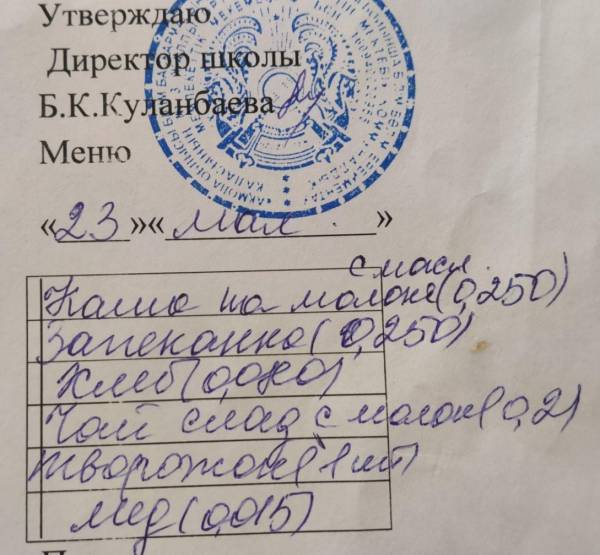 Утверждаю
Директор школы
Б.К.Куланбаева
Меню
«23»«мая»
с масл.
Каша на молоке (0,250)
Запеканка (0,250)
Хлеб (0,080)
Чай слад с молоком (0,2)
Творожок (1 шт)
мёд (0,015)